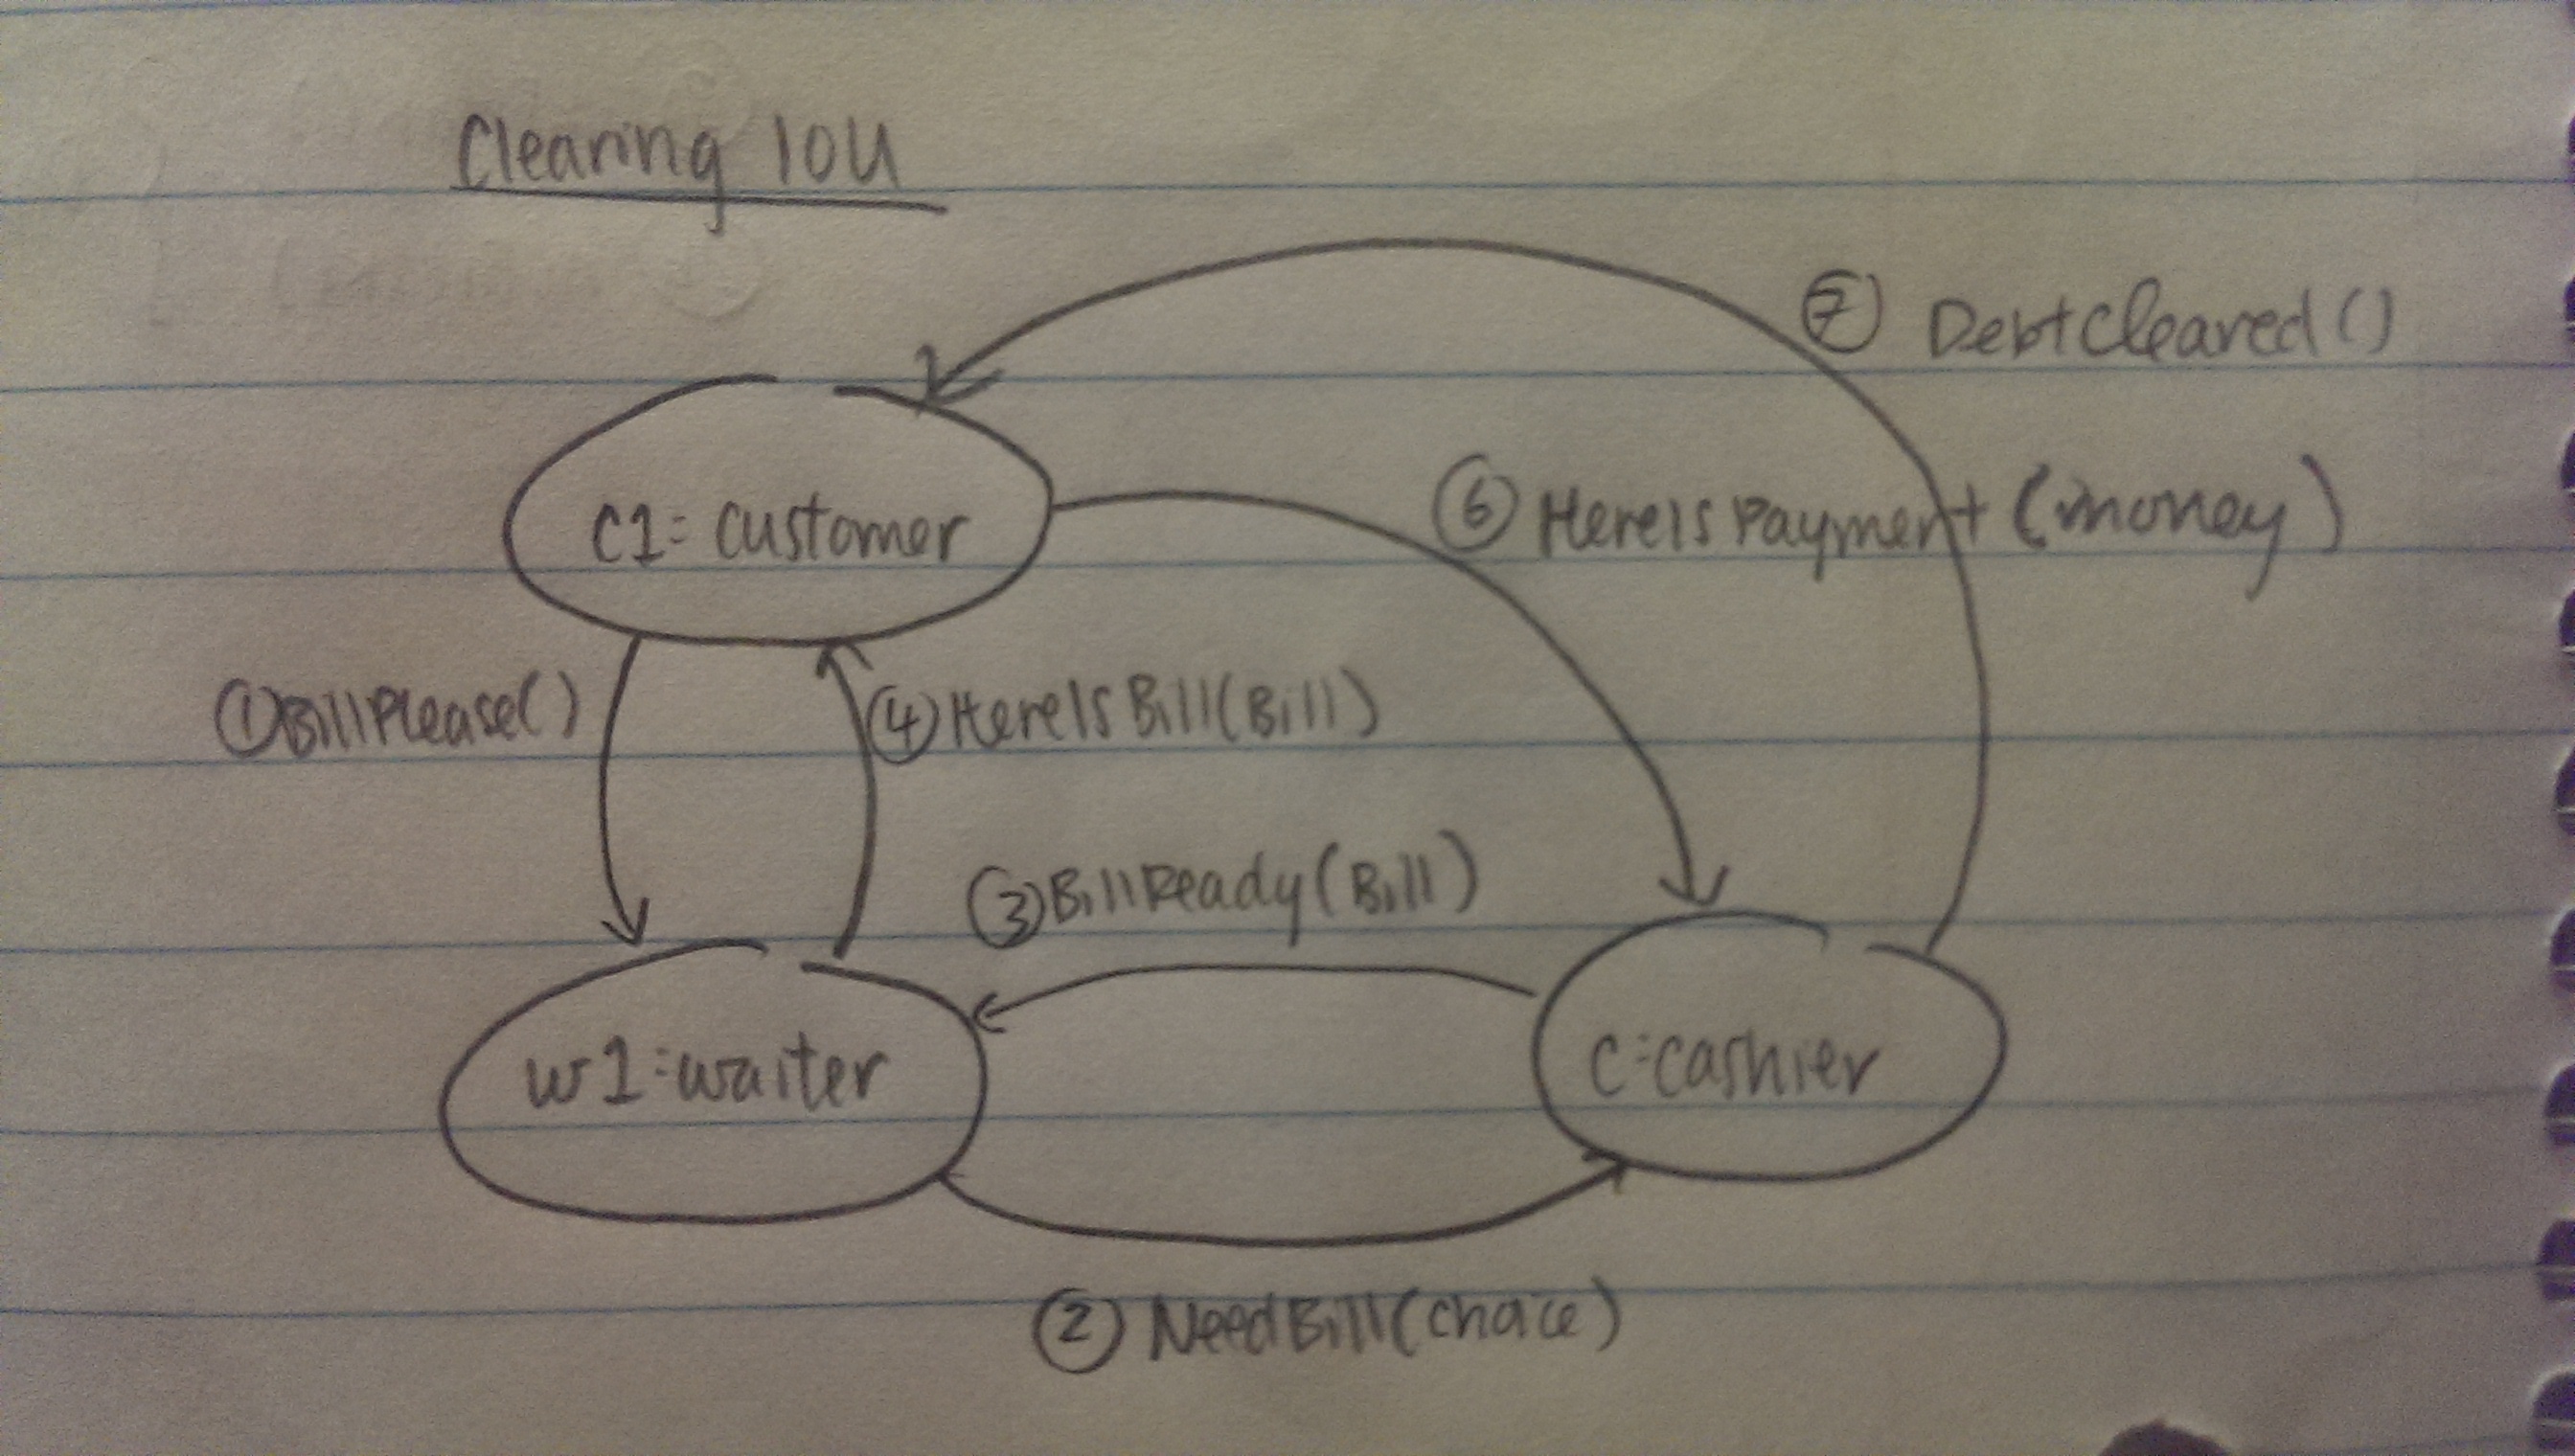 Clearing IOU
⑦ DebtCleared()
⑥ HereIsPayment (money)
c1: customer
①BillPlease()
④HereIsBill(Bill)
③BillReady(Bill)
w1:waiter
c:cashier
② NeedBill(choice)